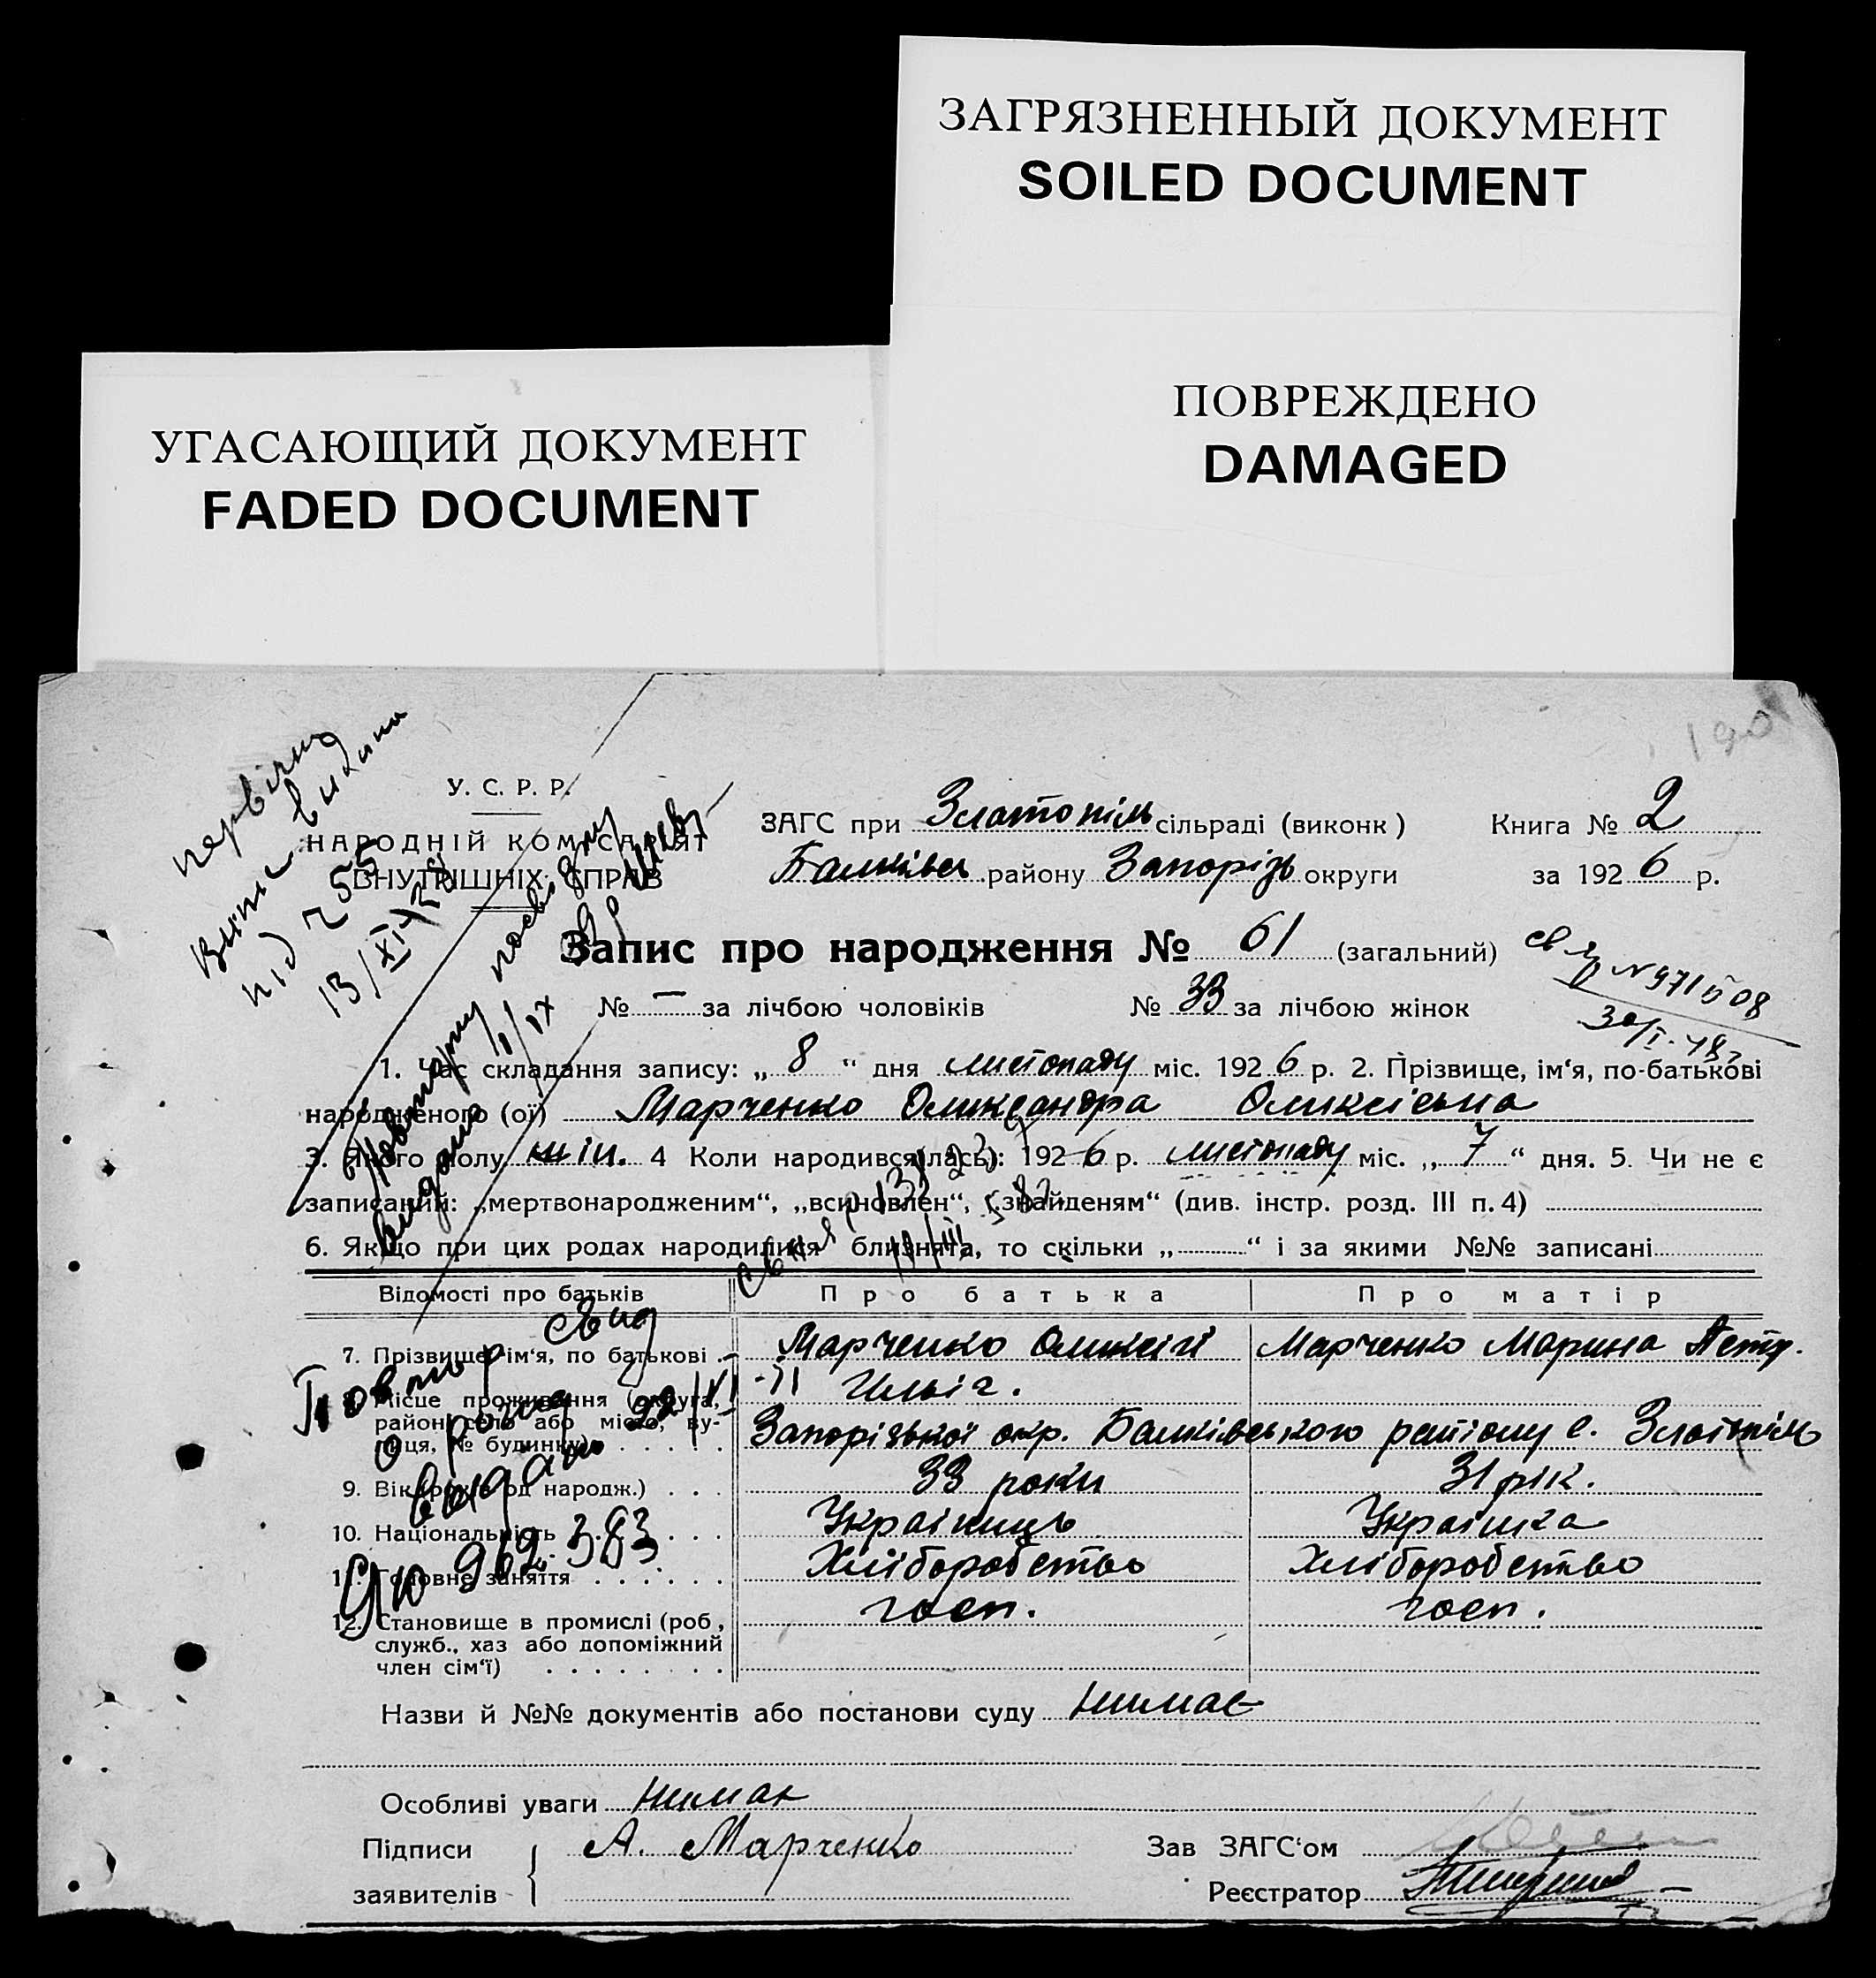 ЗАГРЯЗНЕННЫЙ ДОКУМЕНТ
SOILED DOCUMENT
ПОВРЕЖДЕНО
DAMAGED
УГАСАЮЩИЙ ДОКУМЕНТ
FADED DOCUMENT
190
У. С. Р. Р.
НАРОДНІЙ КОМІСАРІЯТ
ВНУТРІШНІХ СПРАВ
ЗАГС при Златопіль сільраді (виконк) Книга № 2
району Запорізь округи за 1926 р.
Запис про народження № 61 (загальний)
№ — за лічбою чоловіків № 33 за лічбою жінок
1. Час складання запису: „ 8 “ дня листопаду міс. 1926 р. 2. Прізвище, ім‘я, по-батькові
народженого (ої) Марченко Олександра Олексієвна
3. Якого полу жін. 4 Коли народився(лась): 1926 р. листопаду міс. „ 7 “ дня. 5. Чи не є
записаний: „мертвонародженим“, „всиновлен“, „знайденям“ (див. інстр. розд. III п. 4)
6. Якщо при цих родах народилися близнята, то скільки „ “ і за якими №№ записані
Відомості про батьків Про батька Про матір
7. Прізвище, ім‘я, по батькові Марченко Олексій Марченко Марина Петр.
Ильіч.
8. Місце проживання (округа,
район, село або місто, ву-
лиця, № будинку) Запорізької окр. Балківського району с. Златопіль
9. Вік (років од народж.) 33 роки 31 рік.
10. Національність Українець Українка
11. Головне заняття Хліборобство Хліборобство
12. Становище в промислі (роб, госп. госп.
служб., хаз або допоміжний
член сім‘ї)
Назви й №№ документів або постанови суду
Особливі уваги
Підписи А. Марченко Зав ЗАГС‘ом
заявителів Реєстратор
первісна
Випис видана
під 255
13/XI 26
Повторну
видано
Повтор свид
о рожд 22/VI
выдано
962383
N 971508
30/I-48